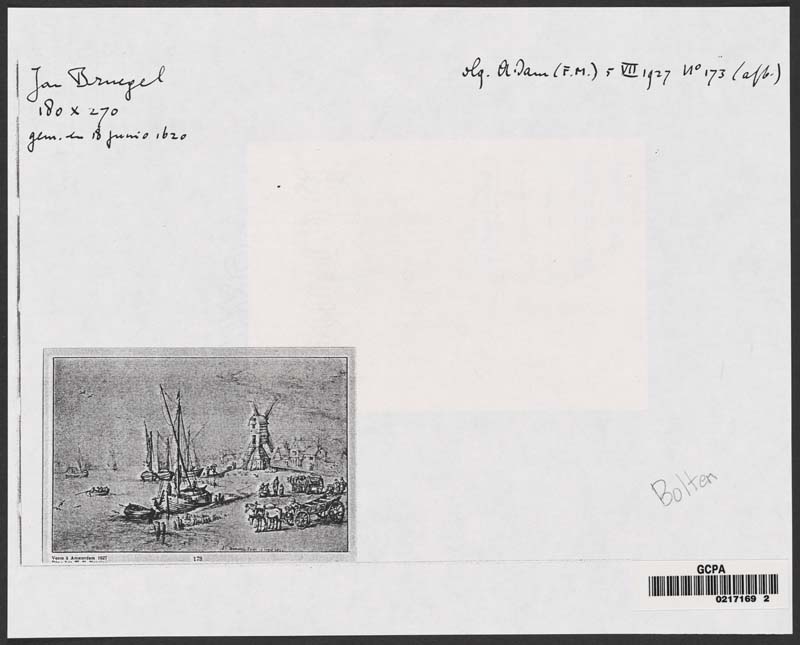 Jan Bruegel
180 x 270
gem. en 18 junio 1620
vlg. A'dam (F.M.) 5 VII 1927 No 173 (afb.)
Vente à Amsterdam 1927
173
Bolten
GCPA
0217169 2